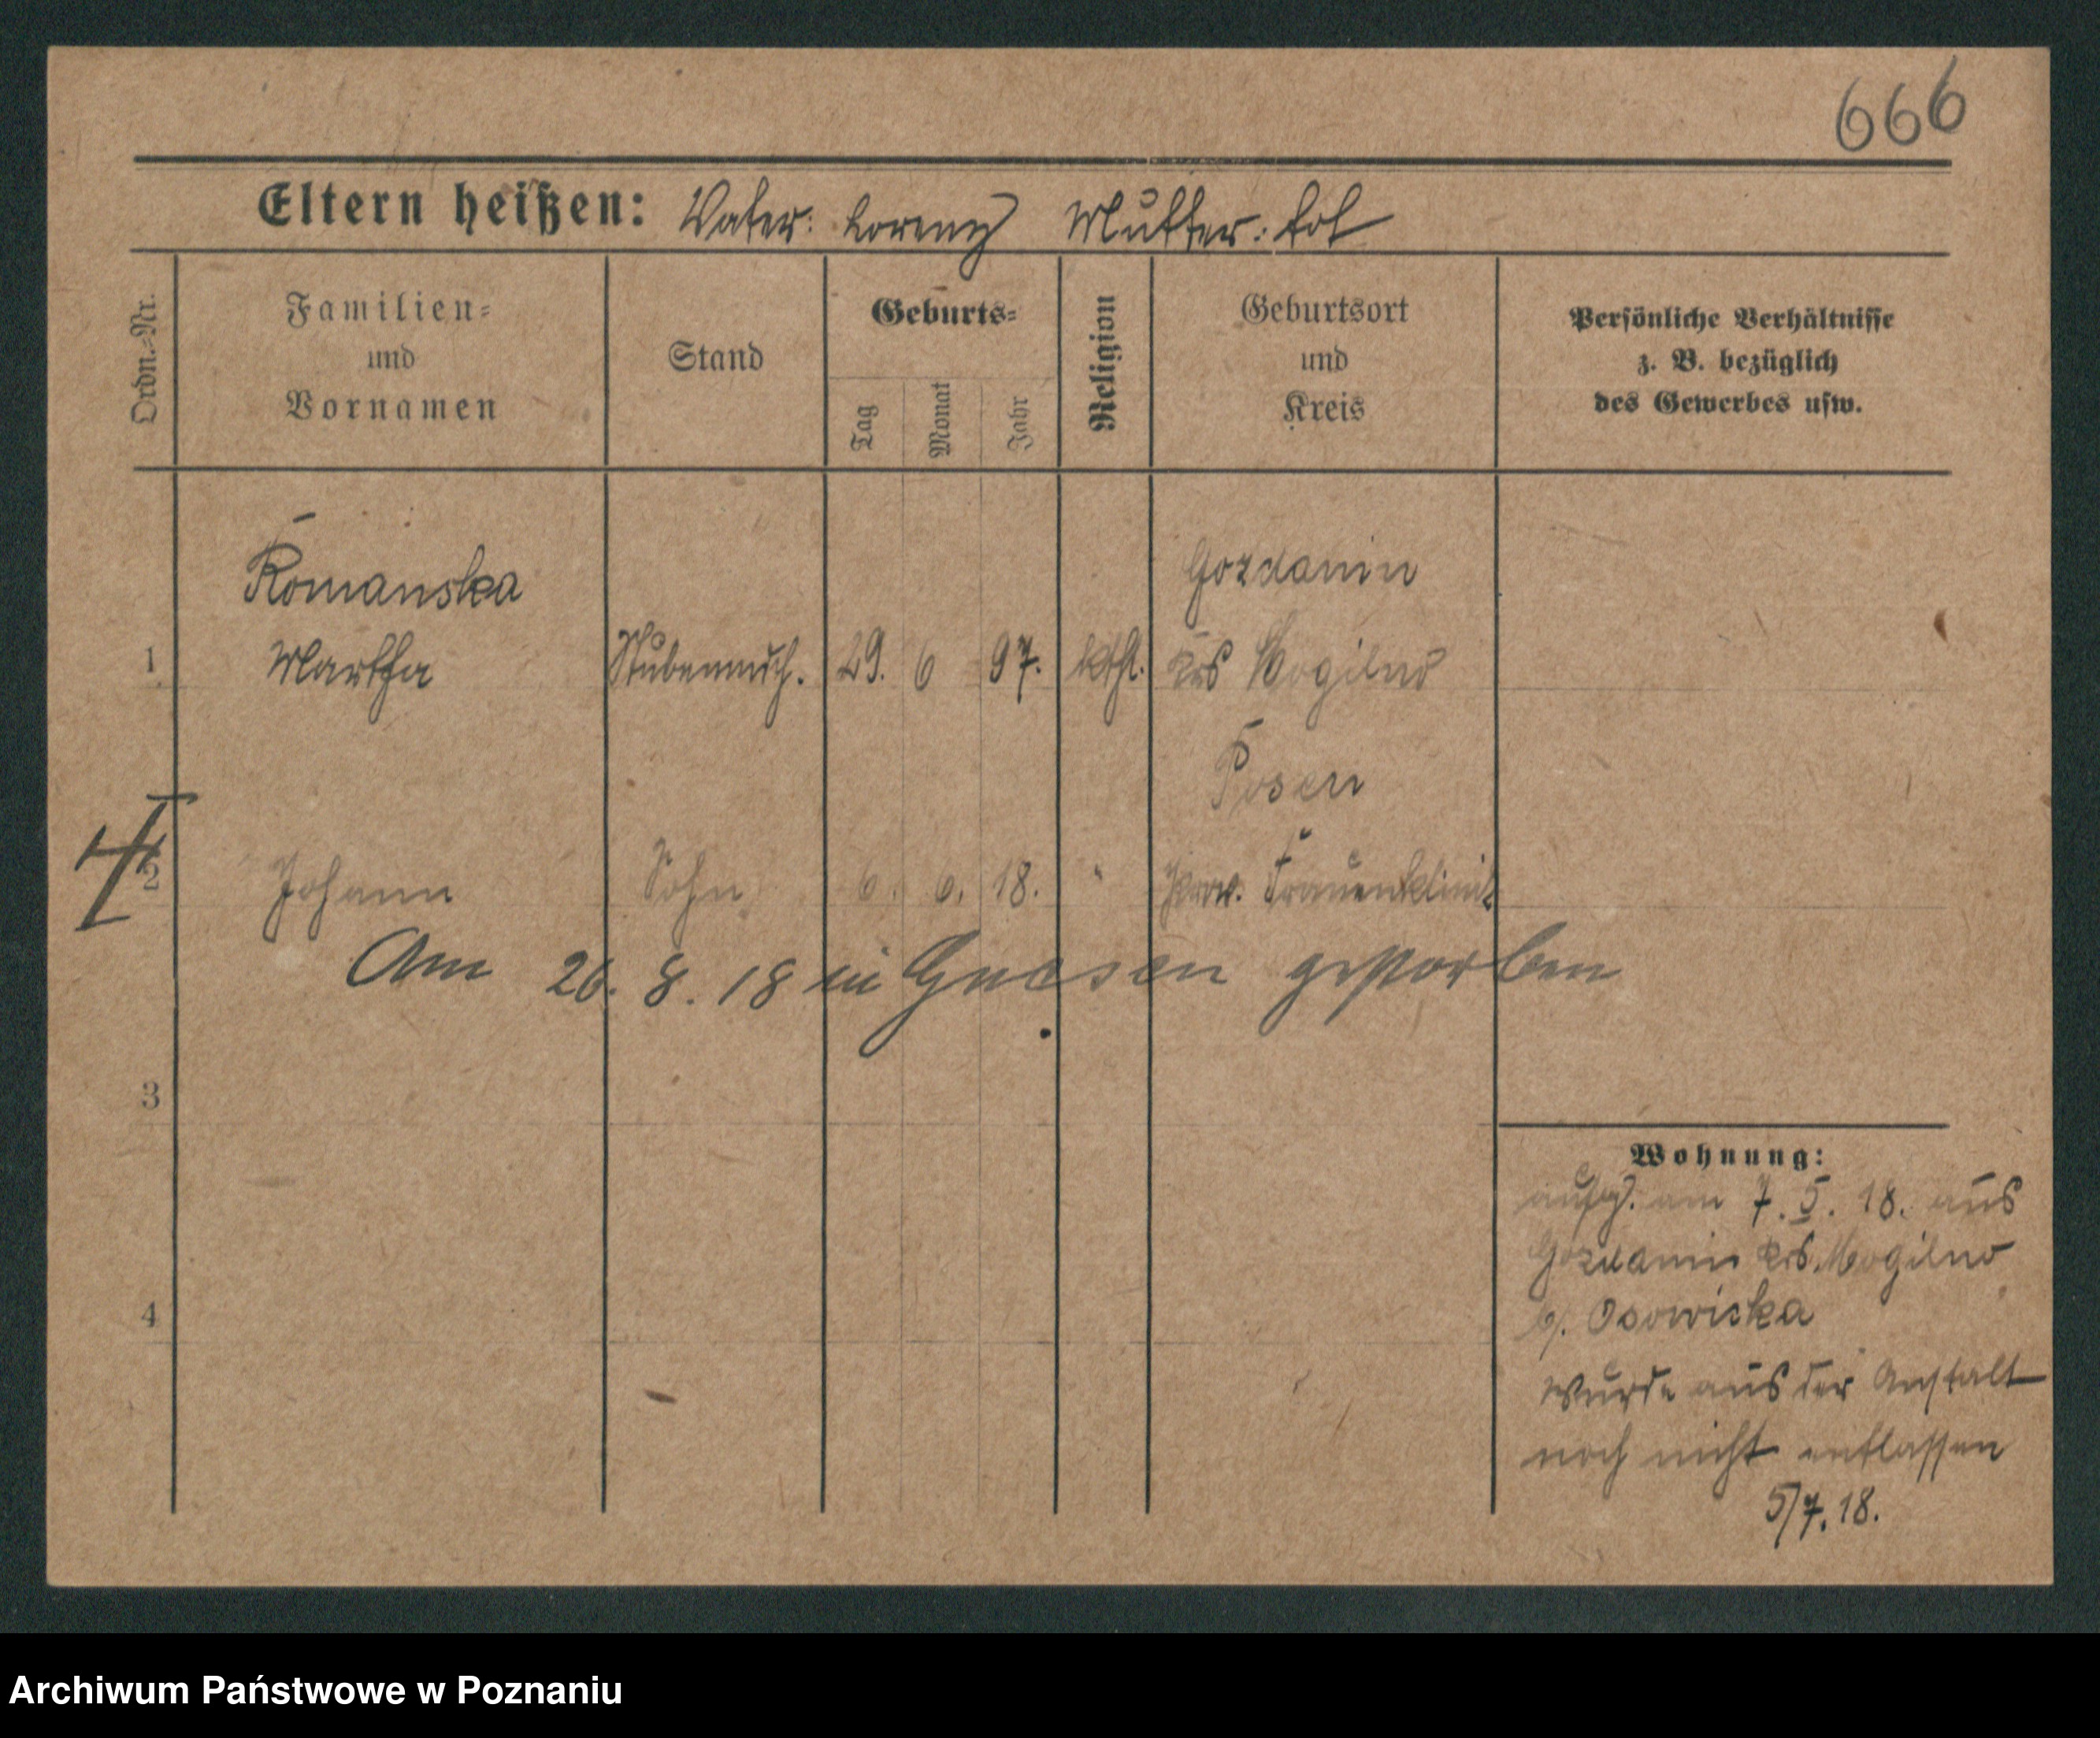 666
Eltern heißen: Vater: Lorenz Mutter: tot
Ordn.-Nr.
Familien-
und
Vornamen
Stand
Geburts-
Tag
Monat
Jahr
Religion
Geburtsort
und
Kreis
Persönliche Verhältnisse
z. B. bezüglich
des Gewerbes usw.
Romanska
Gozdanin
1 Martha Stubenmdch. 29. 6 97. kath. Krs Mogilno
Posen
2 Johann Sohn 6. 6. 18. " Prov. Frauenklinik
Am 26. 8. 18 in Gnesen gestorben
3
Wohnung:
am 7. 5. 18. aus
Gozdanin Krs. Mogilno
4
b/. Osowiska
wurde aus der Anstalt
noch nicht entlassen
5/7.18.
Archiwum Państwowe w Poznaniu